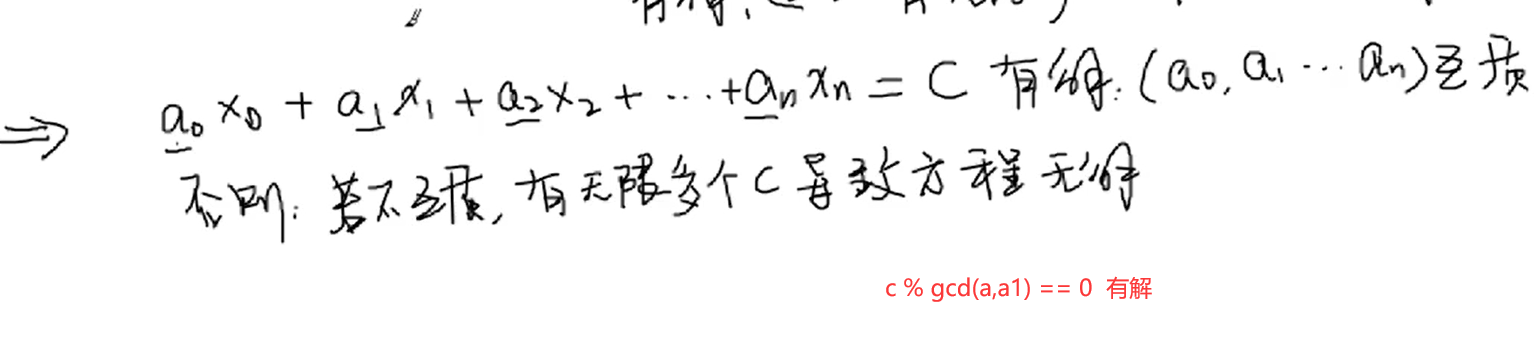 ⇒ a₀x₀ + a₁x₁ + a₂x₂ + ⋯ + aₙxₙ = C 有解: (a₀, a₁ ⋯ aₙ) 互质
否则: 若不互质, 有无限多个C导致方程无解
c % gcd(a,a1) == 0 有解